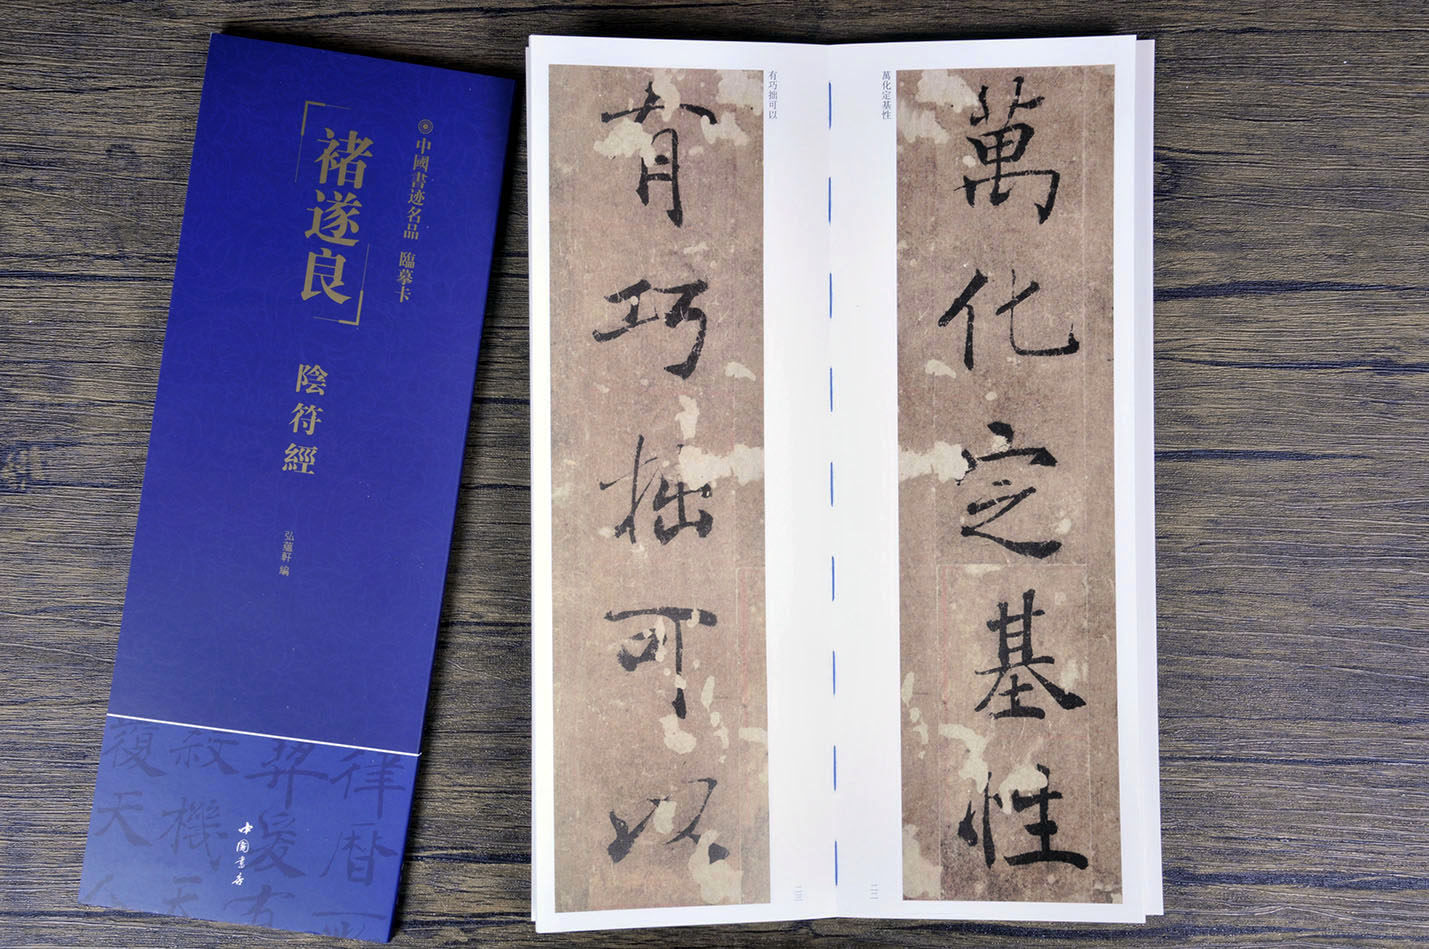 中國書迹名品 臨摹卡
褚遂良
陰符經
弘蘊軒 編
律曆
舜爰有
殺機天
復天人
中國書店
萬化定基性
萬化定基性
二二
有巧拙可以
有巧拙可以
二三